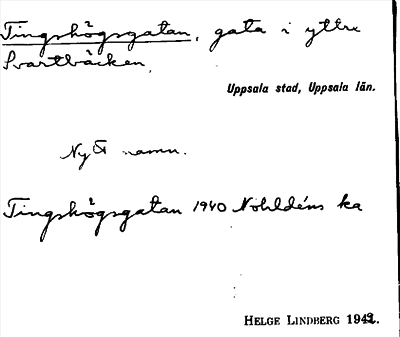 Tingshögsgatan, gata i yttre
Svartbäcken.
Uppsala stad, Uppsala län.
Nytt namn.
Tingshögsgatan 1940 Nohldéns ka
HELGE LINDBERG 1942.